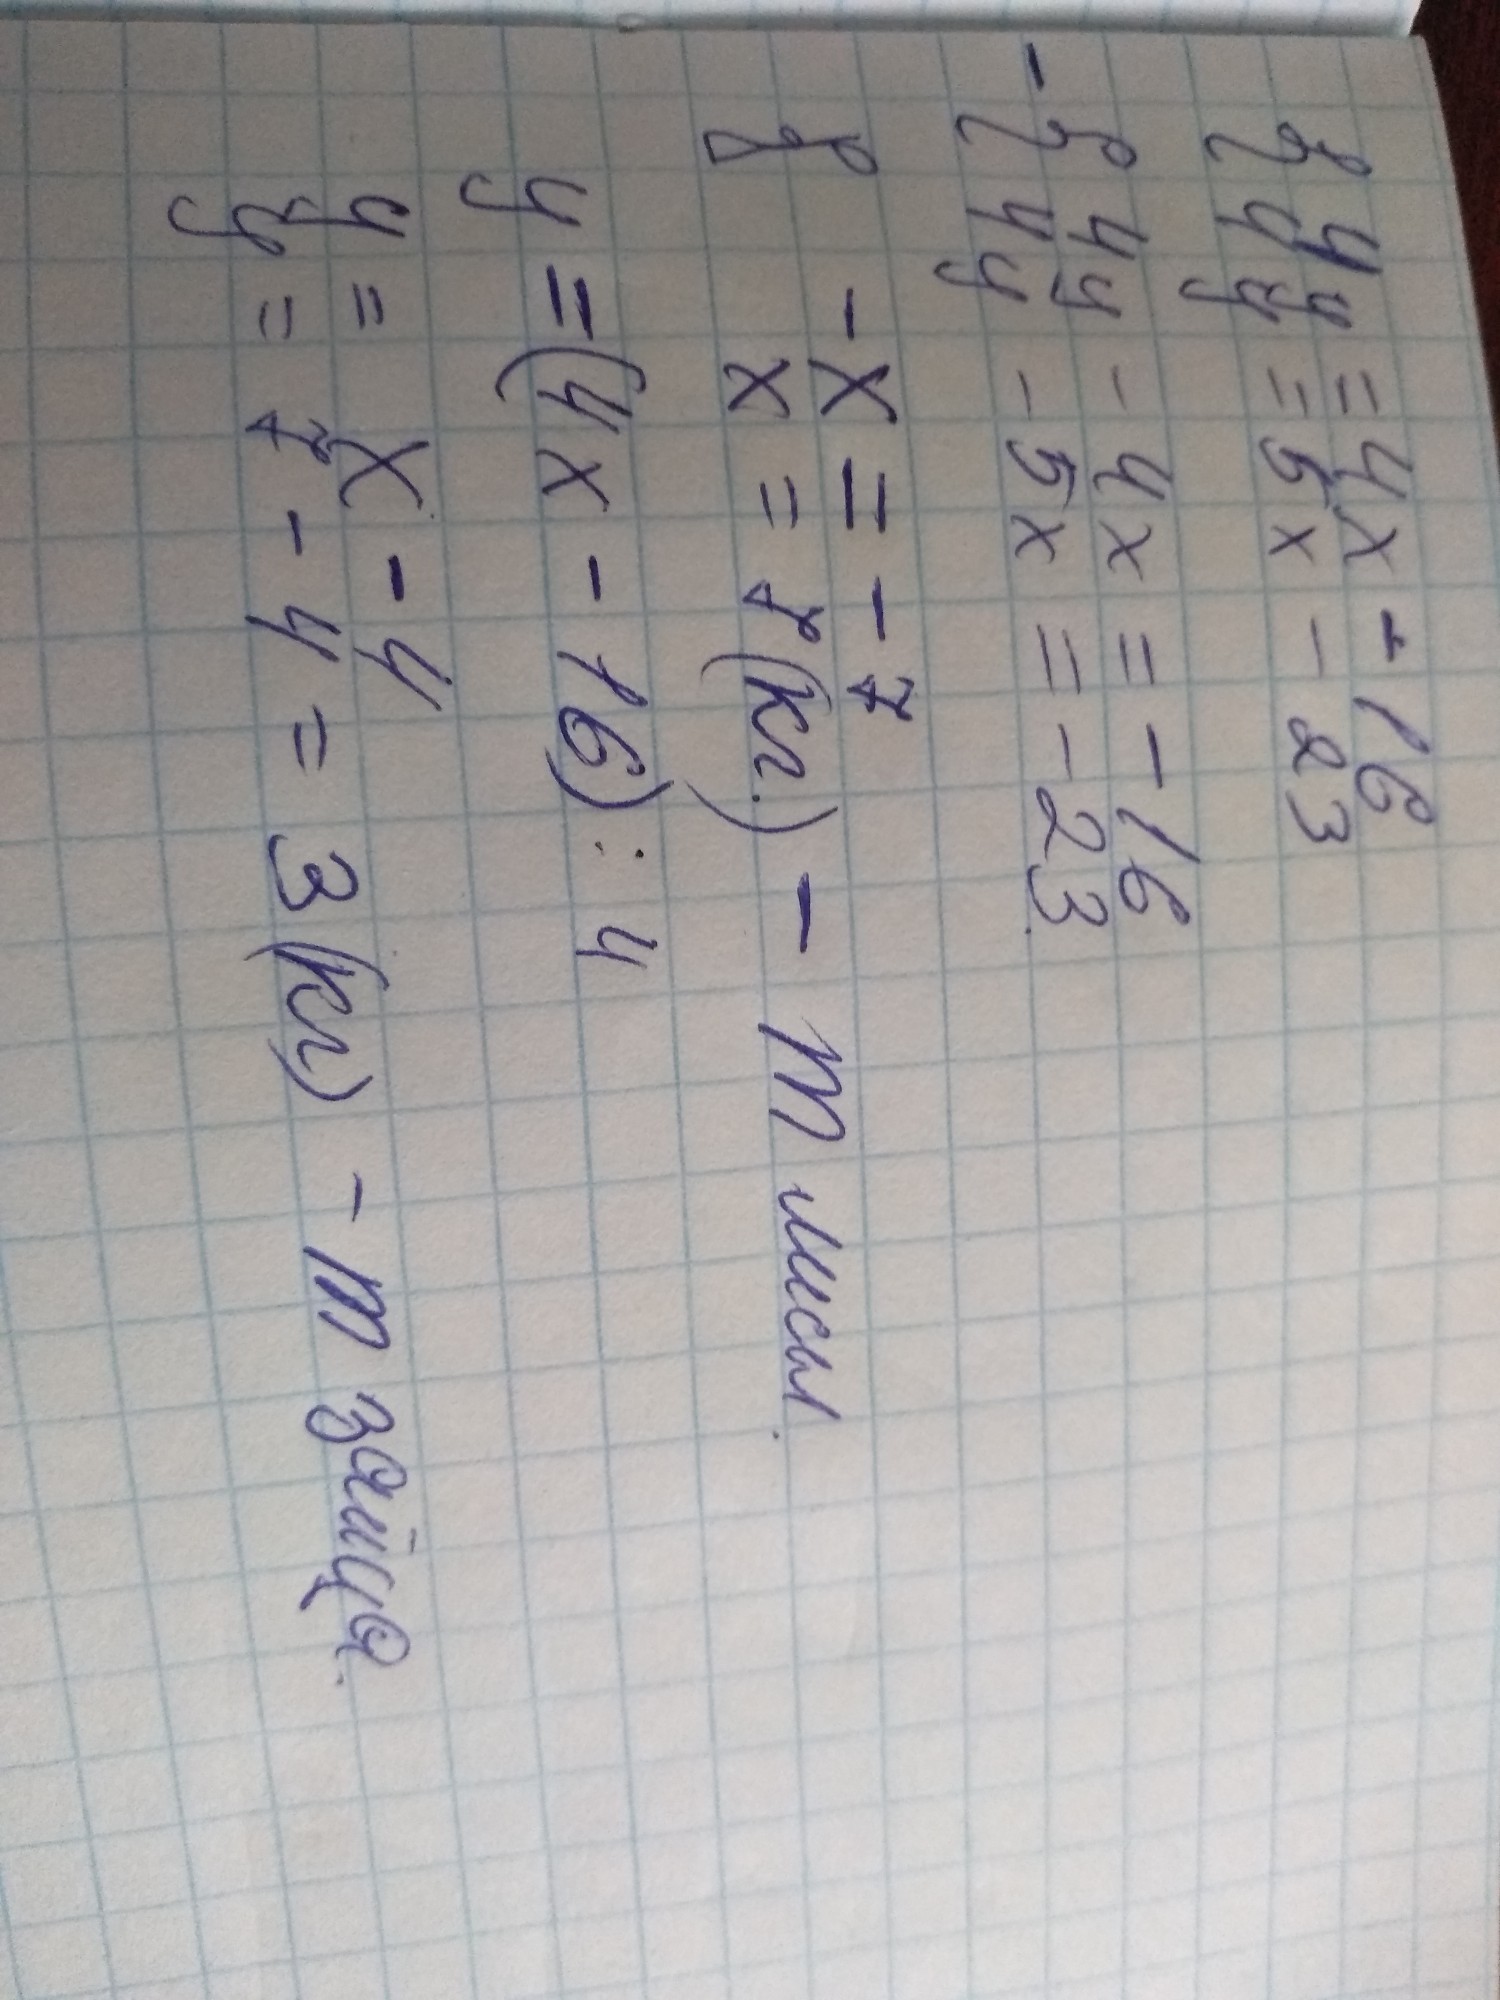 { 4y = 4x - 16
4y = 5x - 23
- { 4y - 4x = - 16
4y - 5x = - 23
{ - x = - 7
x = 7 (кг.) - m лисы.
y = (4x - 16) : 4
y = x - 4
y = 7 - 4 = 3 (кг) - m зайца.